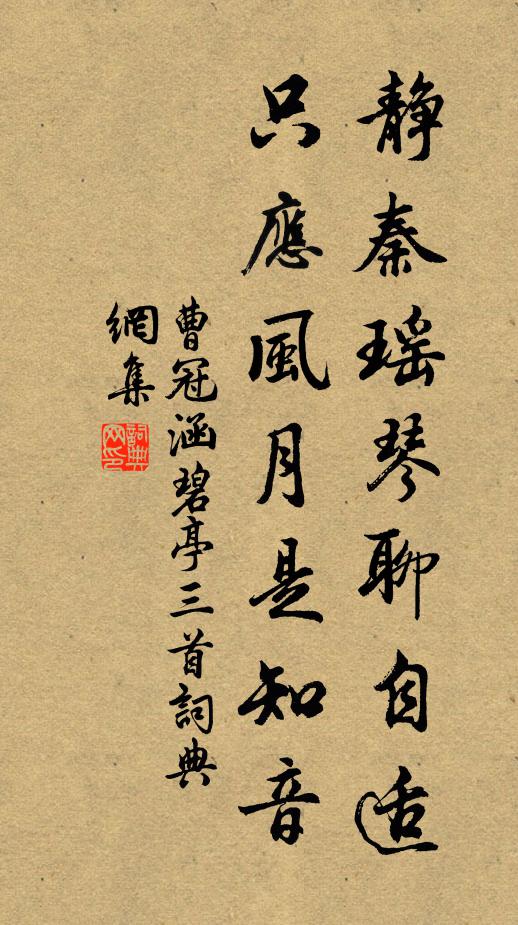 静秦瑶琴聊自适
只應風月是知音
曹冠涵碧亭三首詞典
網集
詞典
网印